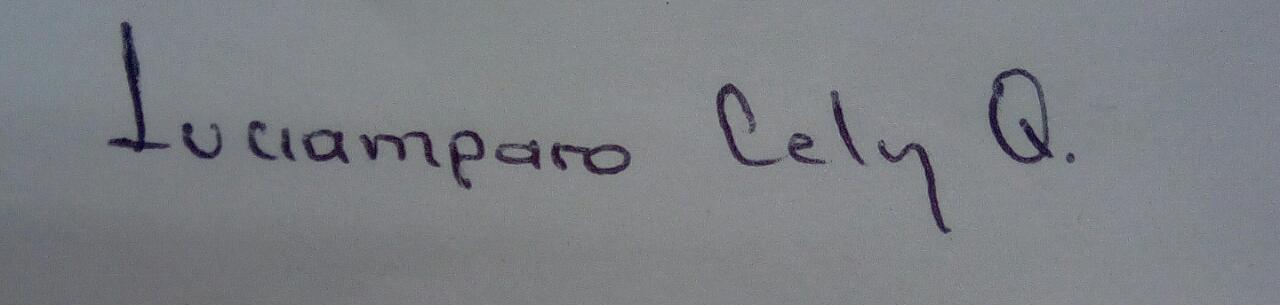 Luciamparo Cely Q.